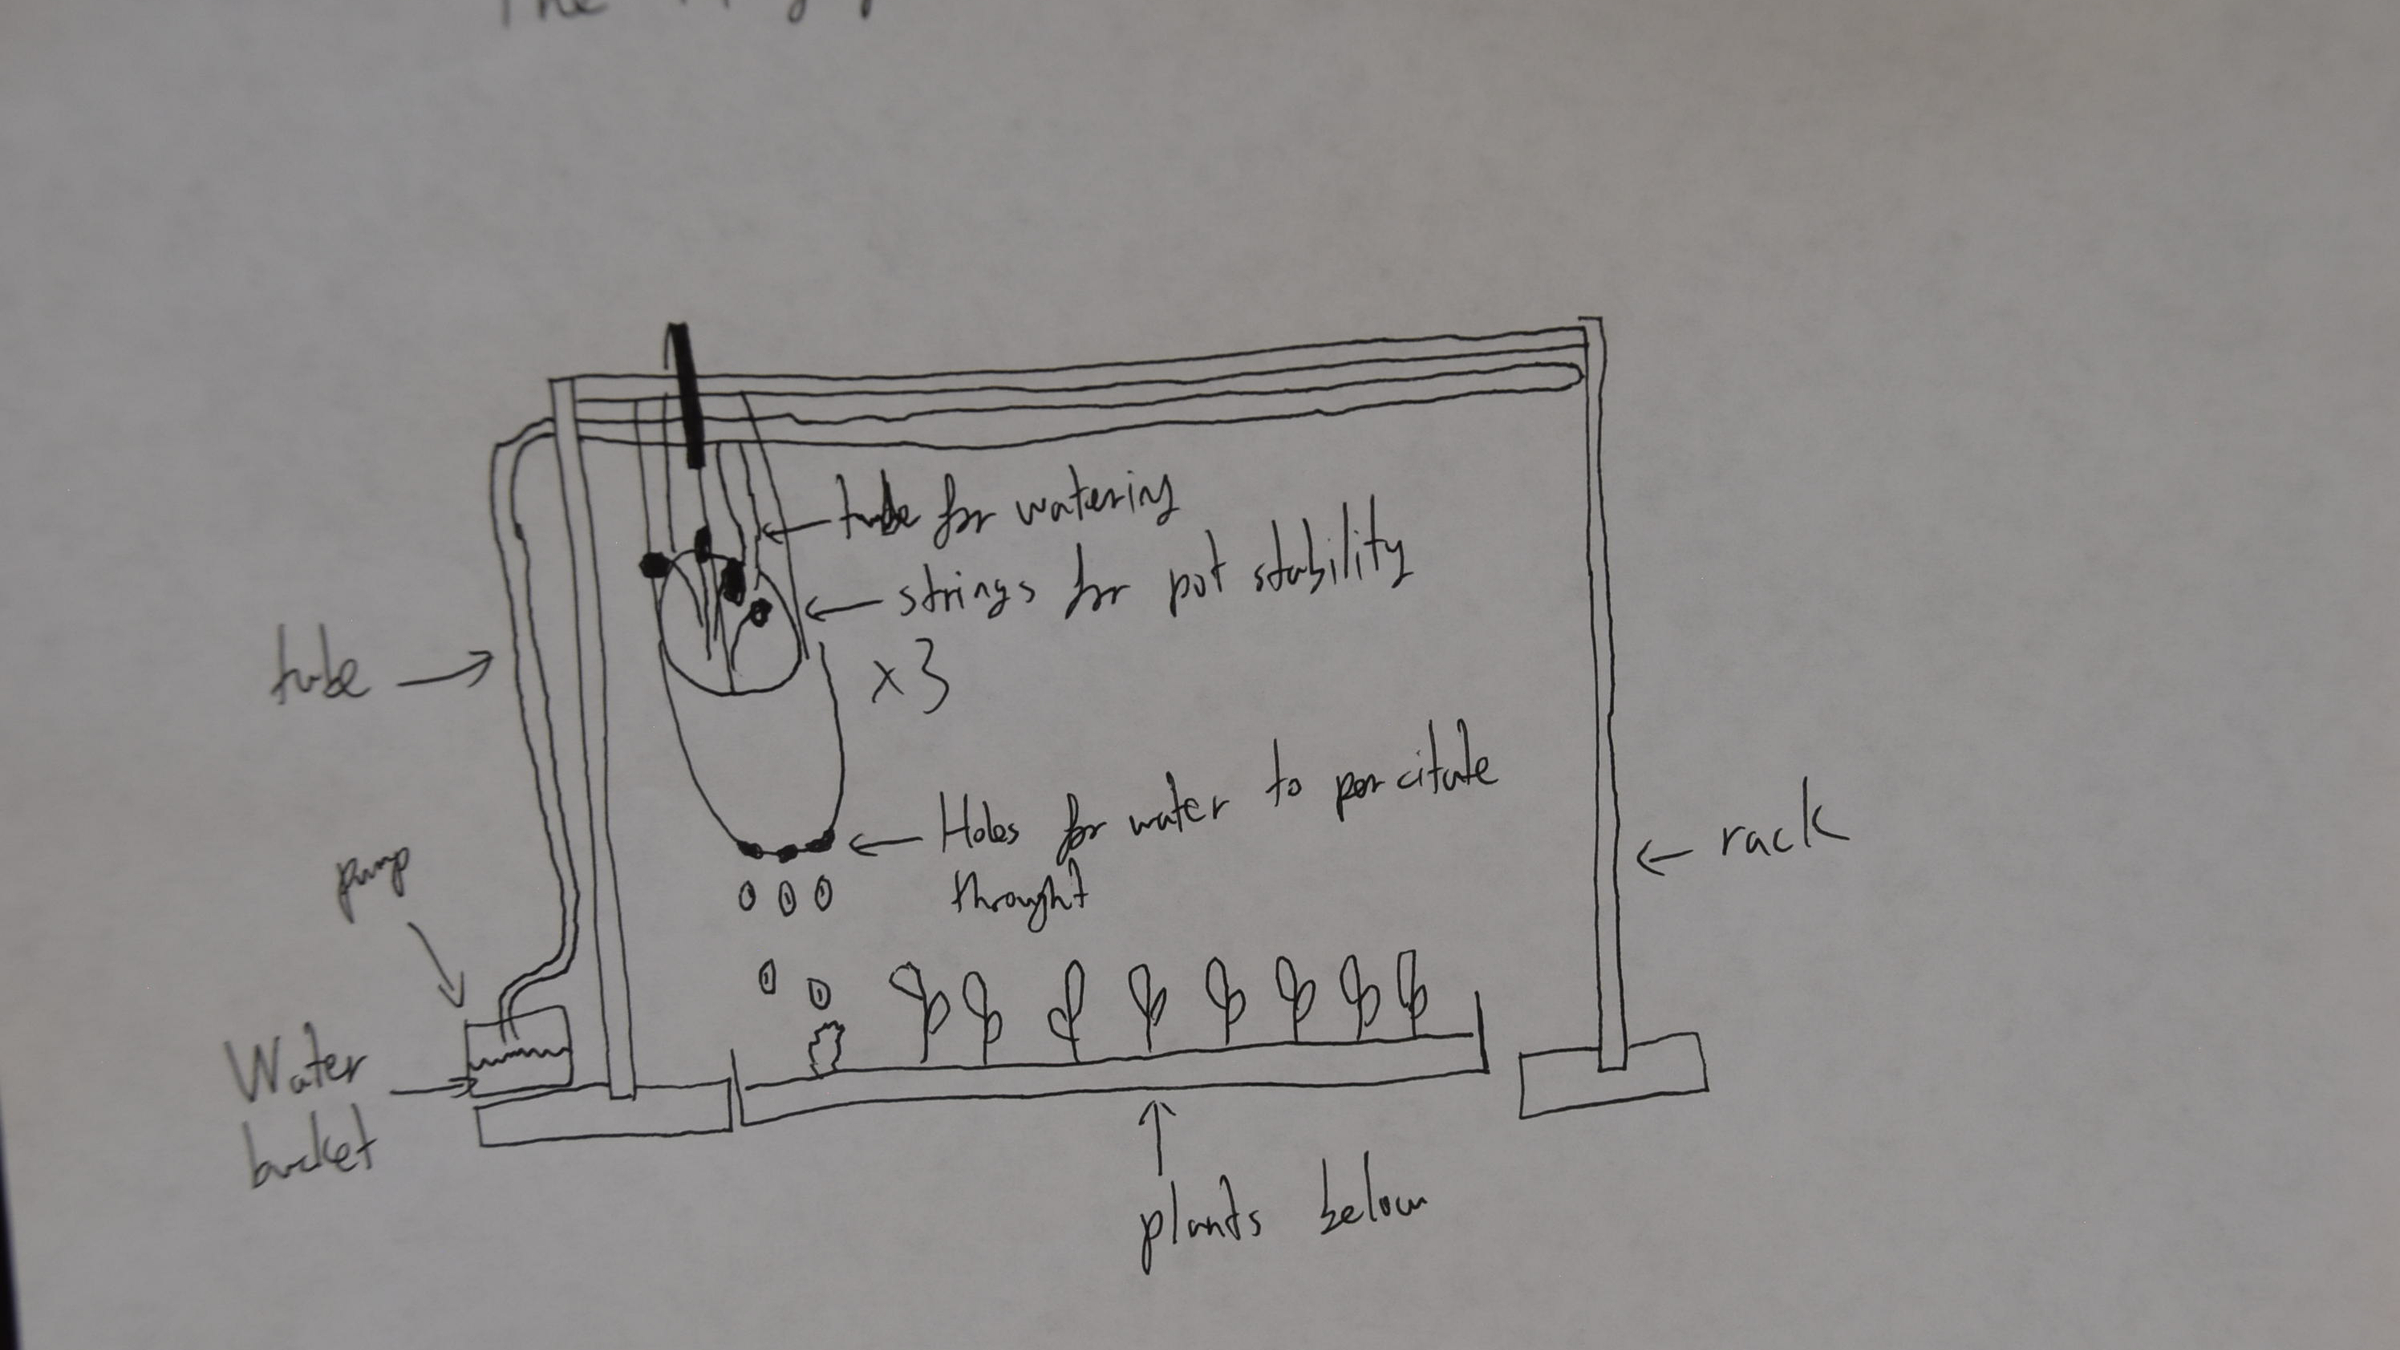 The
tube for watering
strings for pot stability
x3
tube
Holes for water to percitute
throught
rack
pump
Water
bucket
plants below